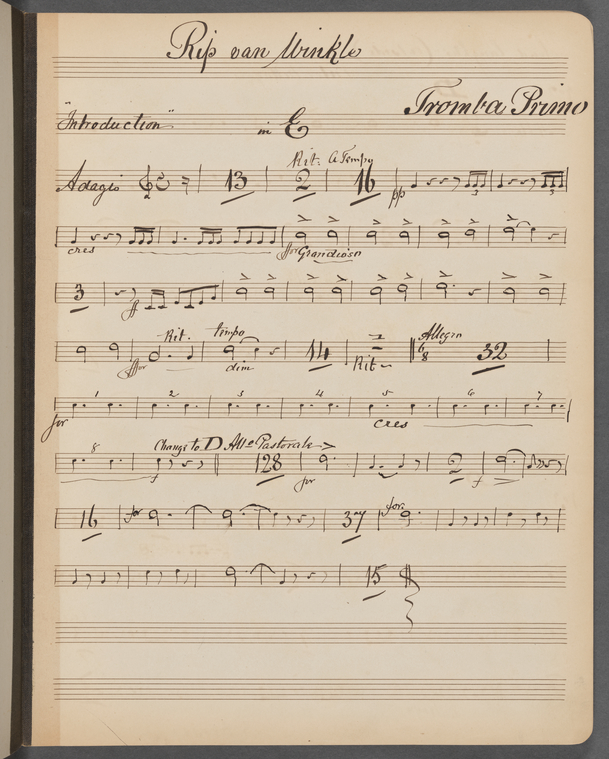 Rip van Winkle
Tromba Primo
"Introduction" in E
Rit: a Tempo
Adagio C 13 2 16 pp 3 3
cres ffor Grandioso
3 ff
Rit. tempo Allegro
ffor dim 14 2 Rit 6 8 32
1 2 3 4 5 6 7
for cres
8 Change to D Allo Pastorale
f 28 for 2 f
16 for 37 for.
15